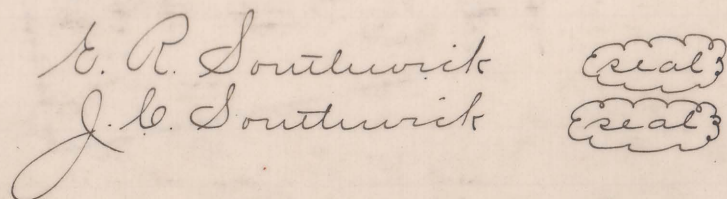 E. R. Southwick seal
J. C. Southwick seal